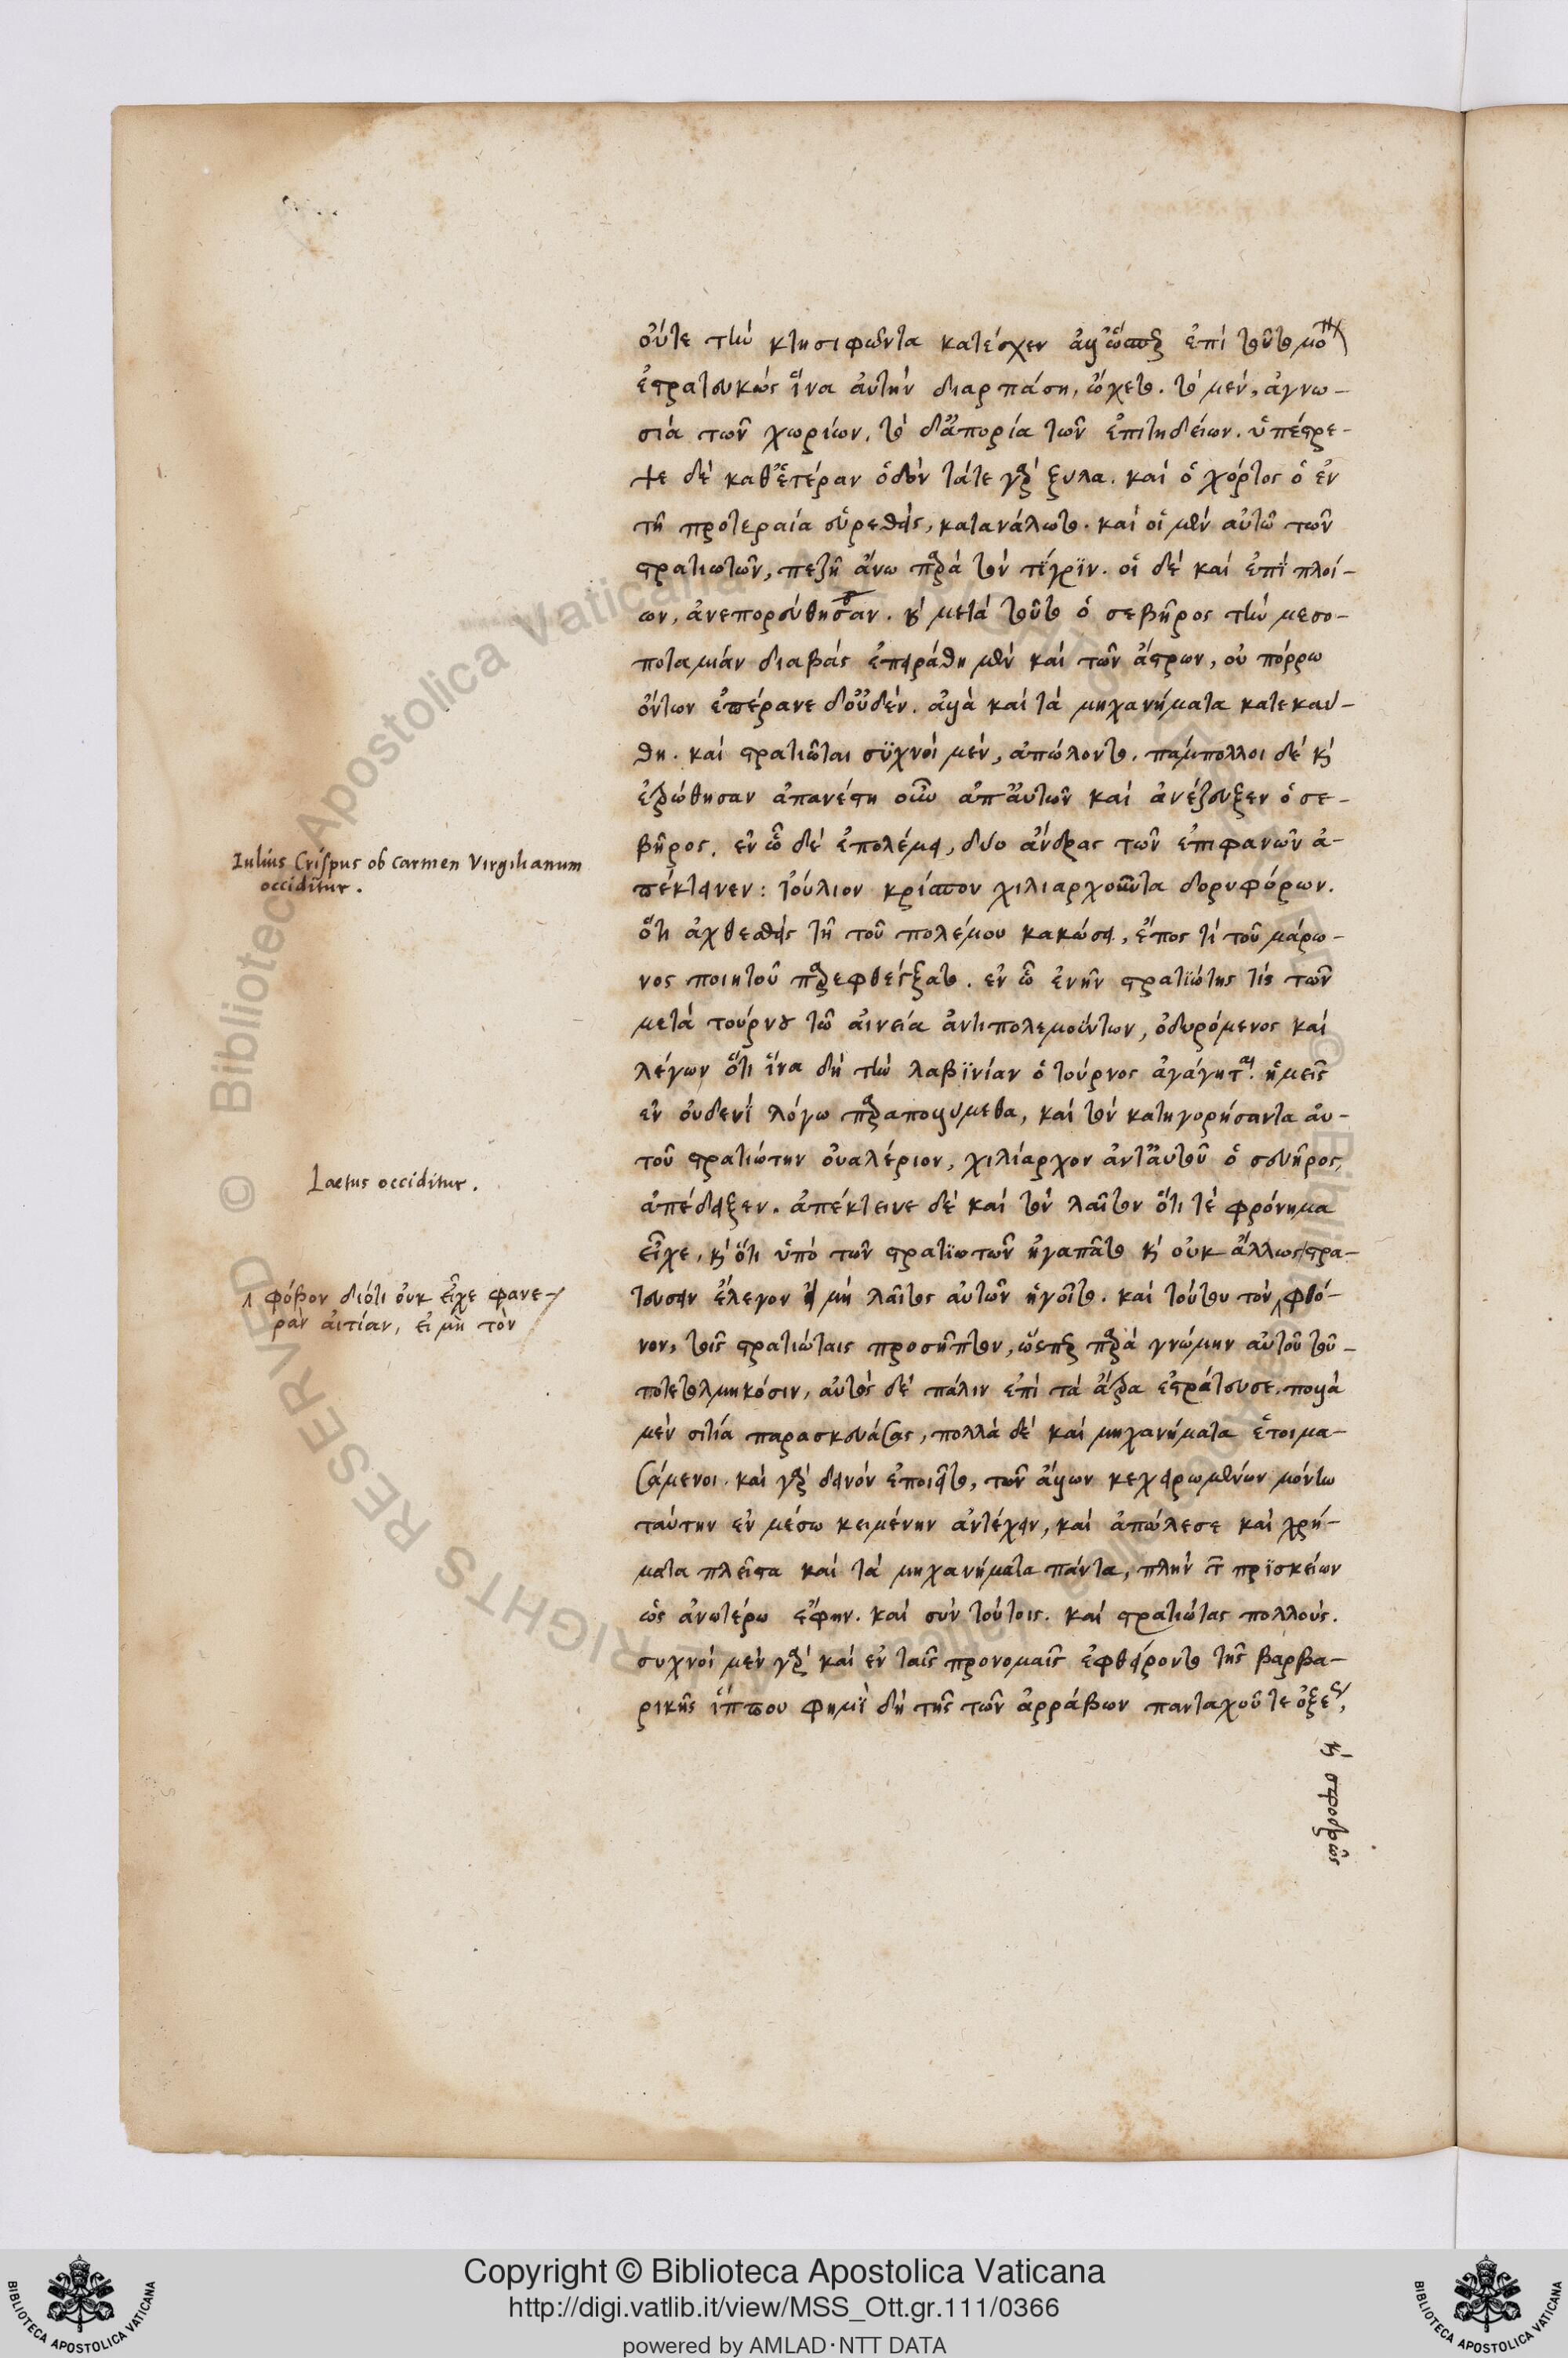 οὔτε τὴν κτησιφῶντα κατέσχεν ἀλλ' ὥσπερ ἐπὶ τοῦτο μόνον
ἐστρατευκὼς ἵνα αὐτὴν διαρπάση, ὤχετο. τὸ μὲν, ἀγνω-
σία τῶν χωρίων, τὸ δ' ἀπορία τῶν ἐπιτηδείων. ὑπέστρε-
ψε δὲ καθ' ἑτέραν ὁδὸν τάτε γὰρ ξυλα. καὶ ὁ χόρτος ὁ ἐν
τῆ προτεραία εὑρεθεὶς, κατανάλωτο. καὶ οἱ μὲν αὐτῶ τῶν
στρατιωτῶν, πεζῆ ἄνω παρὰ τὸν τίγριν. οἱ δὲ καὶ ἐπὶ πλοί-
ων, ἀνεπορεύθησαν. καὶ μετὰ τοῦτο ὁ σεβῆρος τὴν μεσο-
ποταμιάν διαβὰς ἐπειράθη μὲν καὶ τῶν ἄτρων, οὐ πόρρω
ὄντων ἐπέρανε δ' οὐδέν. ἀλλὰ καὶ τὰ μηχανήματα κατεκαύ-
θη. καὶ στρατιῶται συχνοὶ μὲν, ἀπώλοντο. παμπολλοι δὲ καὶ
ἐτρώθησαν ἀπανέστη οὖν ἀπ' αὐτῶν καὶ ἀνέζευξεν ὁ σε-
βῆρος. ἐν ὧ δὲ ἐπολέμει, δύο ἄνδρας τῶν ἐπιφανῶν ἀ-
πέκτεινεν: ἰούλιον κρίσπον χιλιαρχοῦντα δορυφόρων.
ὅτι ἀχθεσθεὶς τῆ τοῦ πολέμου κακώσει, ἔπος τί τοῦ μάρω-
νος ποιητοῦ παρεφθέγξατο. ἐν ὧ ἐνῆν στρατιώτης τίς τῶν
μετὰ τούρνου τῶ αἰνεία ἀντιπολεμούντων, ὀδυρόμενος καὶ
λέγων ὅτι ἵνα δὴ τὴν λαβινίαν ὁ τούρνος ἀγάγηται. ἡμεῖς
ἐν οὐδενὶ λόγω παραπολλύμεθα, καὶ τὸν κατηγορήσαντα αὐ-
τοῦ στρατιώτην οὐαλέριον, χιλίαρχον ἀντ' αὐτοῦ ὁ σευῆρος,
ἀπέδειξεν. ἀπέκτεινε δὲ καὶ τὸν λαῖτον ὅτι τὲ φρόνημα
εἶχε, καὶ ὅτι ὑπὸ τῶν στρατιωτῶν ἠγαπᾶτο καὶ οὐκ ἄλλως στρα-
τευσειν ἔλεγον εἰ μὴ λαῖτος αὐτῶν ἡγοῖτο. καὶ τούτου τὸν φθό-
νον, τοῖς στρατιώταις προσῆπτον, ὥσπερ παρὰ γνώμην αὐτοῦ τοῦ-
το τετολμηκόσιν, αὐτὸς δὲ πάλιν ἐπὶ τὰ ἄτρα ἐστράτευσε. πολλὰ
μὲν σιτία παρασκευάσας, πολλὰ δὲ καὶ μηχανήματα ἑτοιμα-
σάμενοι. καὶ γὰρ δεινὸν ἐποιεῖτο, τῶν ἄλλων κεχειρωμένων μόνην
ταύτην ἐν μέσω κειμένην ἀντέχειν, καὶ ἀπώλεσε καὶ χρή-
ματα πλεῖστα καὶ τὰ μηχανήματα πάντα, πλὴν τῶν πρισκείων
ὡς ἀνωτέρω ἔφην. καὶ σὺν τούτοις. καὶ στρατιώτας πολλούς.
συχνοὶ μὲν γὰρ καὶ ἐν ταῖς προνομαῖς ἐφθείροντο τῆς βαρβα-
ρικῆς ἵππου φημὶ δὴ τῆς τῶν ἀρράβων πανταχοῦ τε ὀξέως,
καὶ σφοδρῶς
Iulius Crispus ob carmen Virgilianum
occiditur.
Laetus occiditur.
φόβον διότι οὐκ εἶχε φανε-
ρὰν αἰτίαν, εἰ μὴ τὸν
Copyright © Biblioteca Apostolica Vaticana
http://digi.vatlib.it/view/MSS_Ott.gr.111/0366
powered by AMLAD·NTT DATA